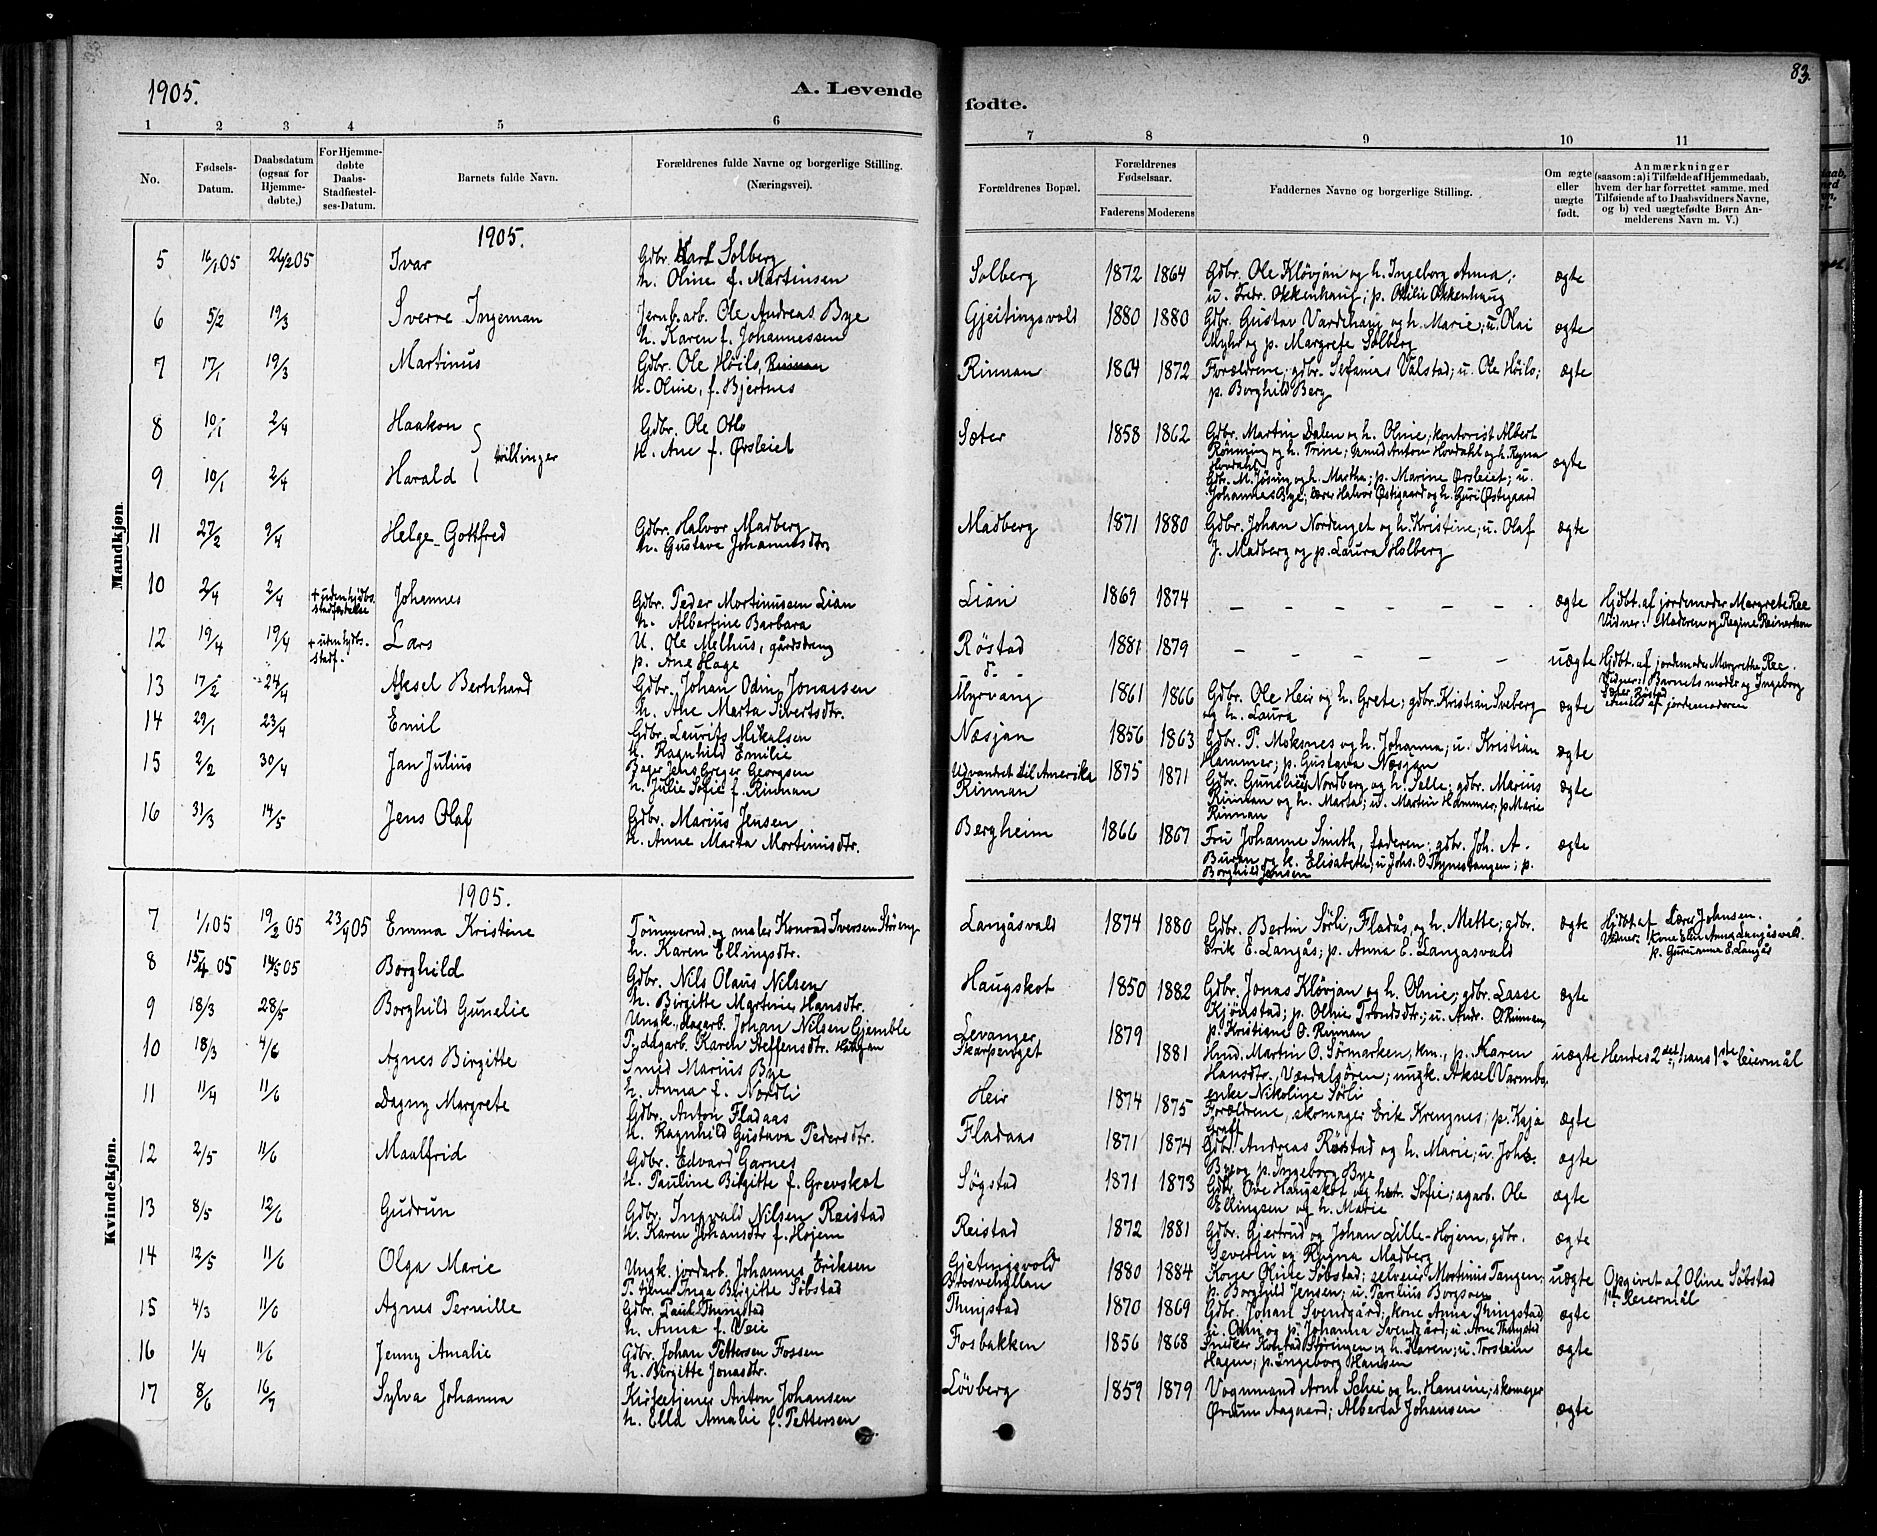 1905.
A. Levende fødte.
83.
1 2 3 4 5 6 7 8 9 10 11
No.
Fødsels-Datum.
Daabsdatum (ogsaa for Hjemme-døbte.)
For Hjemme-døbte Daabs-Stadfæstel-ses-Datum.
Barnets fulde Navn.
Forældrenes fulde Navne og borgerlige Stilling. (Næringsvei).
Forældrenes Bopæl.
Forældrenes Fødselsaar.
Faderens Moderens
Faddernes Navne og borgerlige Stilling.
Om ægte eller uægte født.
Anmærkninger (saasom: a) i Tilfælde af Hjemmedaab, hvem der har forrettet samme, med Tilføiende af to Daabsvidners Navne, og b) ved uægtefødte Børn An-melderens Navn m. V.)
Mandkjøn.
1905.
5 16/1 05 26/2 05 Ivar Gdbr. Karl Solberg Solberg 1872 1864 Gdbr. Ole Kløvjan og h. Ingeborg Anna; ægte
h. Oline f. Martinsen u. Fredr. Okkenhaug; p. Othilie Okkenhaug
6 5/2 19/3 Sverre Ingeman Jernb.arb. Ole Andreas Bye Gjeitingsvold 1880 1880 Gdbr. Gustav Vardehaug og h. Marie; u. Olai ægte
h. Karen f. Johannessen Myhr og p. Margrete Solberg
7 17/1 19/3 Martinus Gdbr. Ole Höilo, Rinnan Rinnan 1864 1872 Forældrene; gdbr. Sefanias Valstad; u. Ole Höilo; ægte
h. Oline, f. Bjertnes p. Borghild Berg
8 10/1 2/4 Haakon Gdbr. Ole Otlo Sæter 1858 1862 Gdbr. Martin Dalen og h. Oline; kontorist Albert
tvillinger h. Ane f. Ørsleiet Rönning og h. Trine; smed Anton Hovdahl og h. Ragna Hovdahl
9 10/1 2/4 Harald Gdbr. M. Jösing og h. Martha; p. Marine Ørsleiet; u. ægte
Johannes Bye; Lærer Halvor Østigaard og h. Guri Østigaard
11 27/2 9/4 Helge Gottfred Gdbr. Halvor Madberg Madberg 1871 1880 Gdbr. Johan Nordenget og h. Kristine; u. Olaf ægte
h. Gustava Johannesdtr J. Madberg og p. Laura Holberg
10 2/4 2/4 + uden hjdbs. stadfæstelse Johannes Gdbr. Peder Martinussen Lian Lian 1869 1874 – – – – – – – ægte Hjdbt. af jordemoder Margrete Ree
h. Albertine Barbara Vidner: Moderen og Regine Reinertsen
12 19/4 19/4 + uden hjdbs. stadf. Lars U. Ole Melhus, gårdsdreng Röstad 1881 1879 – – – – – – uægte Hjdbt. af jordemoder Margrethe Ree.
p. Ane Hage d. Vidner: Barnets moder og Ingeborg
Anmeld af jordemoderen
13 17/2 24/4 Aksel Bernhard Gdbr. Johan Odin Jonassen Myrvang 1861 1866 Gdbr. Ole Heir og h. Grete; gdbr. Kristian Sveberg ægte
h. Ane Marta Sivertsdtr. og h. Laura
14 29/1 23/4 Emil Gdbr. Laurits Mikalsen Næsjan 1856 1863 Gdbr. P. Moksnes og h. Johanna; u. Kristian ægte
h. Ragnhild Emilie Hammer; p. Gustava Næsjan
15 2/2 30/4 Jan Julius Bager Jens Greger Georgsen Udvandret til Amerika 1875 1871 Gdbr. Gunelius Nordberg og h. Salle; gdbr. Marius ægte
h. Julie Sofie f. Rinnan Rinnan Rinnan og h. Marta; u. Martin Hammer; p. Marie Rinnan
16 31/3 14/5 Jens Olaf Gdbr. Marius Jensen Bergheim 1866 1867 Fru Johanne Smith, faderen; gdbr. Joh. A. ægte
h. Anne Marta Mortinusdtr. Buran og h. Elisabeth; u Johs. O. Thynestangen; p. Borghild Jensen
Kvindekjøn.
1905.
7 1/1 05 19/2 05 23/4 05 Emma Kristine Tömmermd. og maler Konrad Iversen Störeng Langåsvald 1874 1880 Gdbr. Bertin Sörli, Fladås, og h. Mette; gdbr. ægte Hjdbt. af Lærer Johnsen.
h. Karen Ellingsdtr. Erik E. Langås; p. Anna E. Langåsvald Vidner: Kone Elin Anna Langåsvald.
p. Gurianna E. Langås
8 15/4 05 14/5 05 Borghild Gdbr. Nils Olaus Nilsen Haugskot 1850 1882 Gdbr. Jonas Kløvjan og h. Oline; gdbr. Lasse ægte
h. Birgitte Martine Hansdtr. Kjönstad; p. Oline Trondsdtr.; u. Andr. O. Rinnan,
9 18/3 28/5 Borghild Gunelie Ungk., dagarb. Johan Nilsen Gjemble Levanger 1879 p. Kristiane O. Rinnan
P. dagarb. Karen Steffensdtr. Skarpenget 1881 Hmd. Martin O. Sörmarken, km., p. Karen uægte Hendes 2det, hans 1ste leiermål
10 18/3 4/6 Agnes Birgitte Smed Marius Bye Heir 1874 1875 Hansdtr. Værdalsören; ungk. Aksel Varmbo, enke Nikoline Sörli
h. Anna f. Nordli Forældrene, skomager Erik Krengnes; p. Kaja Graff ægte
11 11/4 11/6 Dagny Margrete Gdbr. Anton Fladaas Fladaas 1871 1874 Gdbr. Andreas Röstad og h. Marie; u. Johs. ægte
h. Ragnhild Gustava Pedersdtr. Bye og p. Ingeborg Bye
12 2/5 11/6 Maalfrid Gdbr. Edvard Garnes Søgstad 1871 1873 Gdbr. Ove Haugskot og h. Sofie; agarb. Ole ægte
h. Pauline Birgitte f. Grevskot Ellingsen og h. Marie
13 8/5 12/6 Gudrun Gdbr. Ingvald Nilsen Reistad Reistad 1872 1881 Gdbr. Gjertrud og Johan Lille-Hojem, gdbr. ægte
h. Karen Johansdtr f. Hojem Severin og Ragna Madberg
14 12/5 11/6 Olga Marie Ungk. jordarb. Johannes Eriksen Gjetingsvold 1880 1884 Kone Oline Söbstad; selveier Mortinus Tangen; uægte Opgivet af Oline Söbstad
P. tjener Inga Birgitte Söbstad p. Borghild Jensen; u. Parelius Borgsøen 1ste leiermål
15 4/3 11/6 Agnes Pernille Gdbr. Paul Thingstad Thingstad 1870 1869 Gdbr. Johan Svendgård; kone Anna Thingstad ægte
h. Anna f. Veie u. Odin og p. Johanna Svendgård; u. Arne Thingstad
16 1/4 11/6 Jenny Amalie Gdbr. Johan Pettersen Fossen Fosbakken 1856 1868 Snedker Kolstad Störingen og h. Karen; u. Torstein ægte
h. Birgitte Jonasdtr. Hagen; p. Ingeborg Hansen
17 8/6 16/7 Sylva Johanna Kirketjener Anton Johansen Lövberg 1859 1879 Vognmand Arnt Schei og h. Hansine; skomager
h. Ella Amalie f. Pettersen Ørcum Aagaard; Alberta Johansen ægte